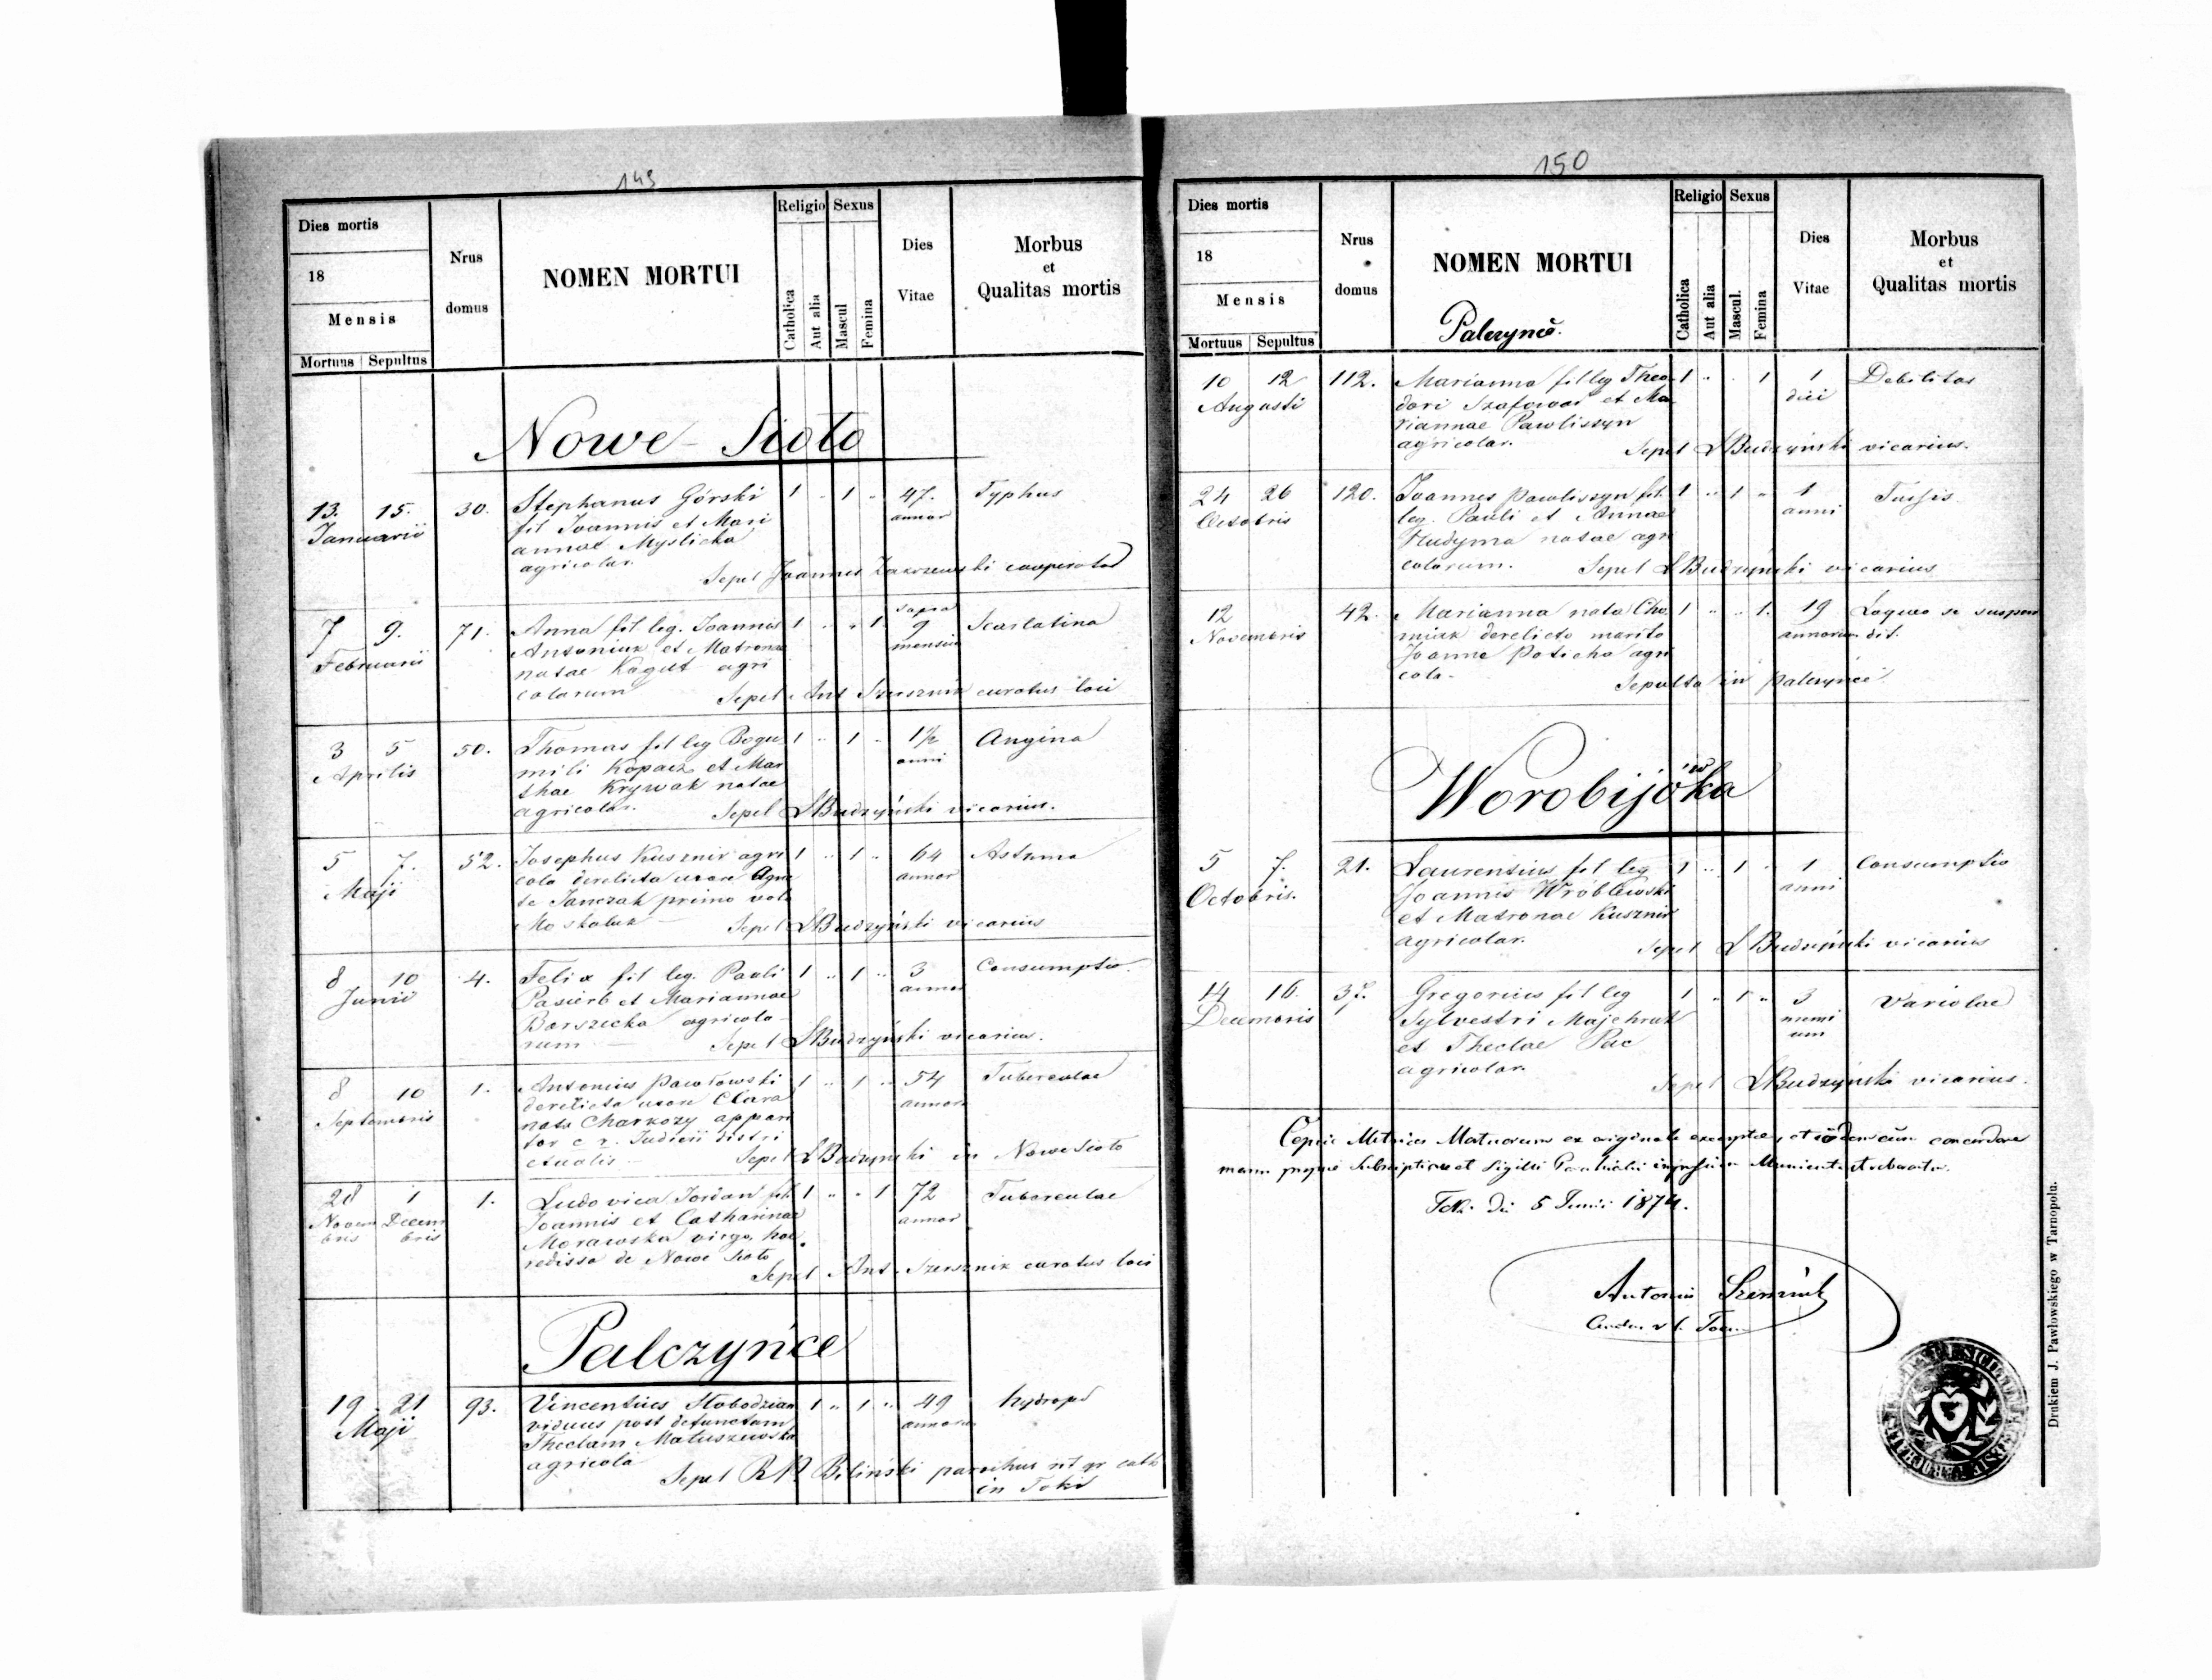 149
Dies mortis
18
Mensis
Mortuus Sepultus
Nrus
domus
NOMEN MORTUI
Religio Sexus
Catholica
Aut alia
Mascul
Femina
Dies
Vitae
Morbus
et
Qualitas mortis
Nowe-Sioło
13. 15. 30. Stephanus Górski 1 " 1 " 47. Typhus
Januarii fil Joannis et Mari annor
annae Myslicka
agricolar.
Sepel Joannes Zakrzewski cooperator
7 9. 71. Anna fil leg. Joannis 1 " " 1 9 Scarlatina
Februarii Antoniuk et Matronae mensiu
natae Kagut agri
colarum
Sepel Ant Szersznik curatus loci
3 5 50. Thomas fil leg Bogu 1 " 1 " 1½ Angina
Aprilis mili Kopacz et Mar anni
thae Krywak natae
agricolar. Sepel LBudzyński vicarius.
5 7. 52. Josephus Kusznir agri 1 " 1 " 64 Asthma
Maji cola derelicta uxore Agne annor
te Janczak primo voto
Moskaluk Sepel LBudzyński vicarius
8 10 4. Felix fil leg. Pauli 1 " 1 " 3 Consumptio.
Junii Pasierb et Mariannae annor
Barszecka agricola
rum Sepel LBudzyński vicarius.
8 10 1. Antonius Pawłowski 1 " 1 " 54 Tuberculae
Septembris derelicta uxore Clara annor
nata Charkozy appari
tor c r. Judicii distri
ctualis Sepel LBudzynski in Nowe Sioło
28 1 1. Ludovica Jordan fil 1 " " 1 72 Tuberculae
Novem Decem Joannis et Catharinae annor
bris bris Morawska virgo, hae
redissa de Nowe Sioło
Sepel Ant. Szersznik curatus loci
Palczyńce
19 21 93. Vincentius Słobodzian 1 " 1 " 49 hydrops
Maji viduus post defunctam annorum
Theclam Matuszewska
agricola
Sepel R Biliński parochus rit gr cath
in Toki
150
Dies mortis
18
Mensis
Mortuus Sepultus
Nrus
domus
NOMEN MORTUI
Palczynce.
Religio Sexus
Catholica
Aut alia
Mascul.
Femina
Dies
Vitae
Morbus
et
Qualitas mortis
10 12 112. Marianna fil leg Theo 1 " 1 1 Debilitas
Augusti dori et Ma diei
riannae Pawliszyn
agricolar.
Sepel LBudzyński vicarius.
24 26 120. Joannes Pawliszyn fil. 1 " 1 " 1 Tussis
Octobris leg. Pauli et Annae anni
Hudyma natae agri
colarum. Sepel LBudzyński vicarius
12 42. Marianna nata Cho 1 " " 1. 19 Laqueo se suspen
Novembris miak derelicto marito annorum dit.
Joanne Poticha agri
cola. Sepulta in Palczyńce
Worobijówka
5 7. 21. Laurentius fil leg 1 " 1 " 1 Consumptio
Octobris. Joannis Wróblewski anni
et Matronae Kusznir
agricolar.
Sepel LBudzyński vicarius
14 16. 37. Gregorius fil leg 1 " 1 " 3 Variolae
Decembris Sylvestri Majchrak
et Theclae Pac
agricolar.
Sepel LBudzyński vicarius.
Metrices ex originale
manu Subscriptione et Sigilli
5 Junii 1874.
Antoni Szersznik
Drukiem J. Pawłowskiego w Tarnopolu.